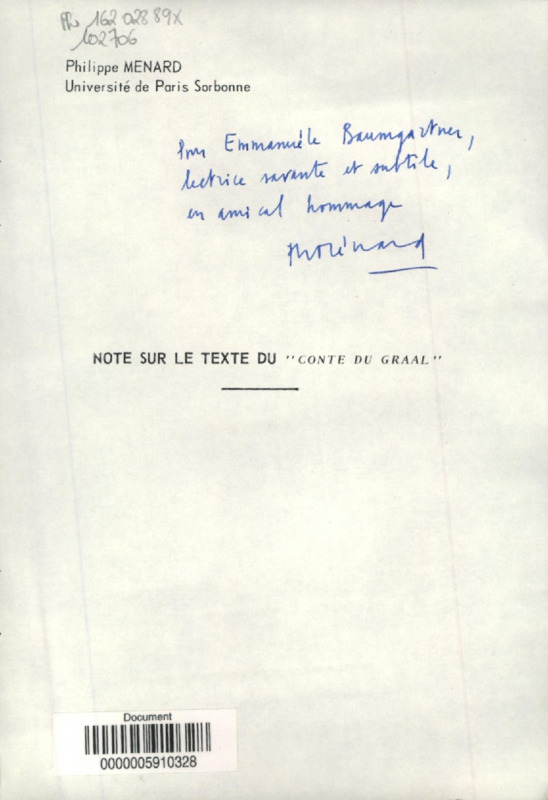 162 028 89X
102706
Philippe MENARD
Université de Paris Sorbonne
Pour Emmanuèle Baumgartner,
lectrice savante et subtile,
en amical hommage
PhMénard
NOTE SUR LE TEXTE DU "CONTE DU GRAAL"
Document
0000005910328